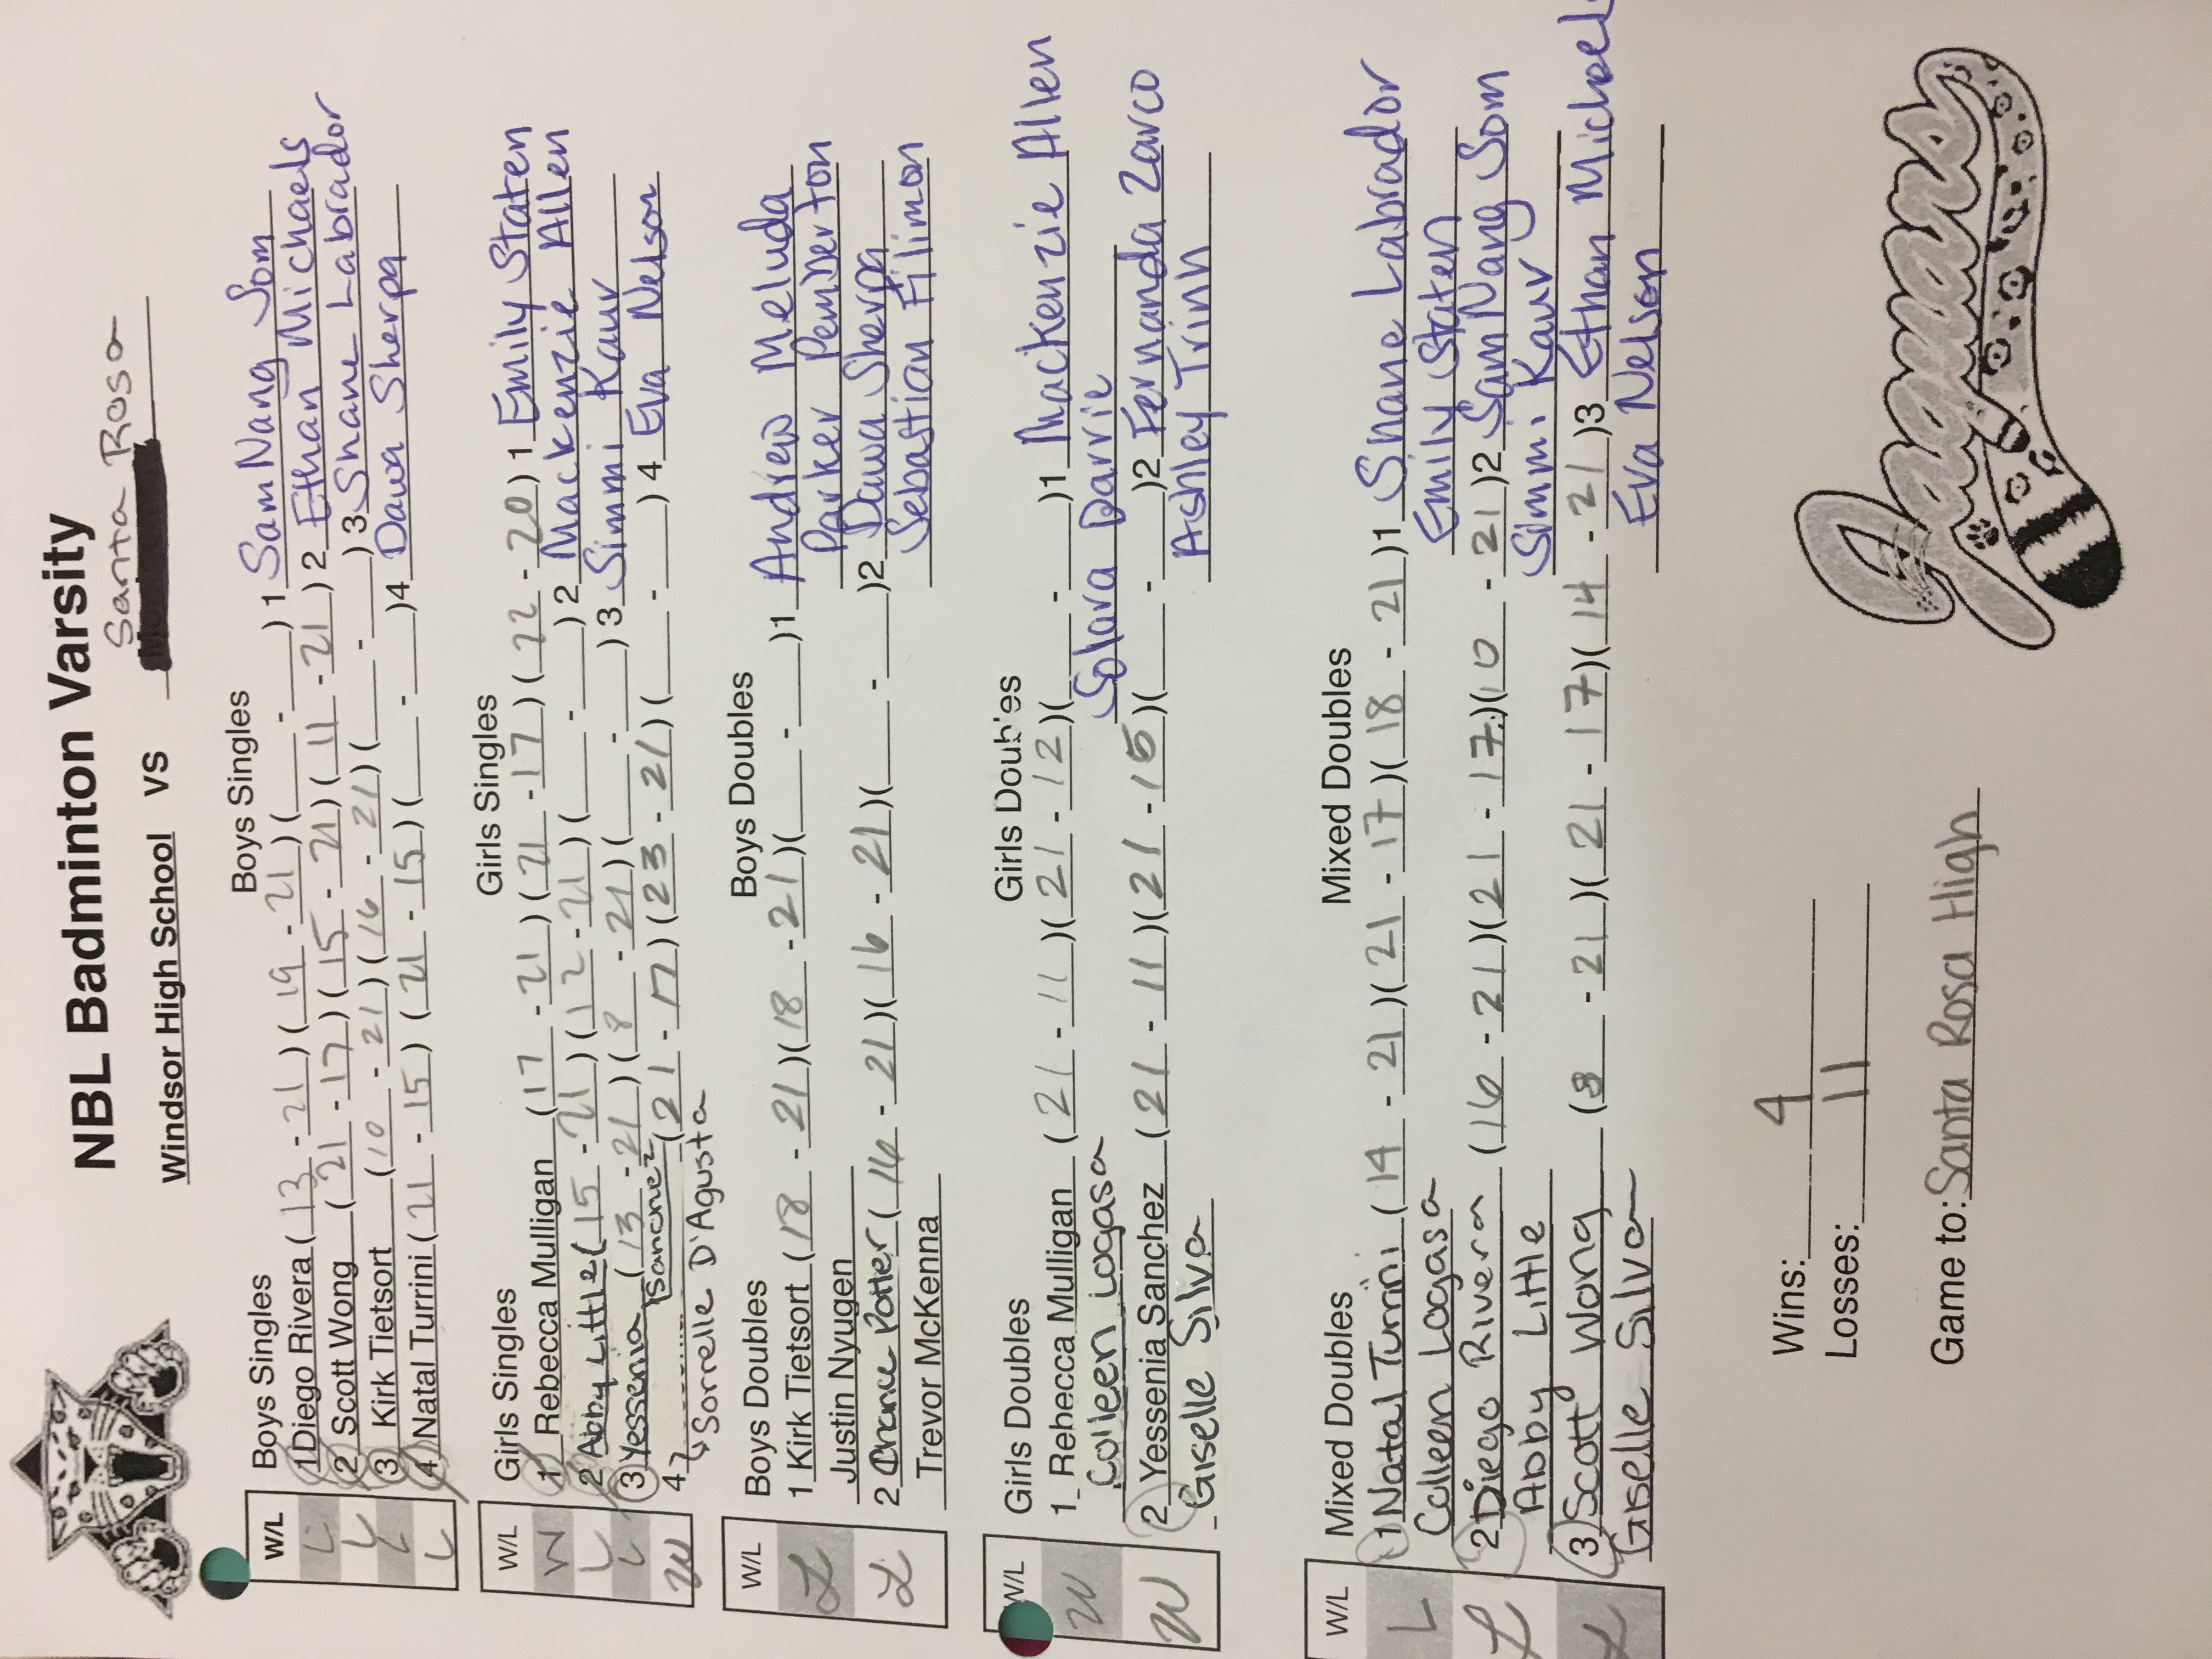 NBL Badminton Varsity
Santa Rosa
Windsor High School vs
Boys Singles Boys Singles
W/L
L 1 Diego Rivera (13 - 21) (19 - 21) ( - ) 1 Sam Nang Som
L 2 Scott Wong (21 - 17) (15 - 21) (11 - 21) 2 Ethan Michaels
L 3 Kirk Tietsort (10 - 21) (16 - 21) ( - ) 3 Shane Labrador
L 4 Natal Turrini (21 - 15) (21 - 15) ( - ) 4 Dawa Sherpa
Girls Singles Girls Singles
W/L
W 1 Rebecca Mulligan (17 - 21) (21 - 17) (22 - 20) 1 Emily Staten
L 2 Abby Little (15 - 21) (12 - 21) ( - ) 2 Mackenzie Allen
L 3 Yessenia Sanchez (13 - 21) (8 - 21) ( - ) 3 Simmi Kaur
W 4 (21 - 17) (23 - 21) ( - ) 4 Eva Nelson
Sorrelle D'Agusta
Boys Doubles Boys Doubles
W/L
L 1 Kirk Tietsort (18 - 21) (18 - 21) ( - ) 1 Andrew Meluda
Justin Nyugen Parker Pemberton
L 2 Chance Potter (14 - 21) (16 - 21) ( - ) 2 Dawa Sherpa
Trevor McKenna Sebastian Filimon
Girls Doubles Girls Doubles
W/L
W 1 Rebecca Mulligan (21 - 11) (21 - 12) ( - ) 1 Mackenzie Allen
Colleen Logasa Solara Darrie
W 2 Yessenia Sanchez (21 - 11) (21 - 15) ( - ) 2 Fernanda Zarco
Giselle Silva Ashley Trinh
Mixed Doubles Mixed Doubles
W/L
L 1 Natal Turrini (14 - 21) (21 - 17) (18 - 21) 1 Shane Labrador
Colleen Logasa Emily Staten
L 2 Diego Rivera (16 - 21) (21 - 17) (10 - 21) 2 Sam Nang Som
Abby Little Simmi Kaur
L 3 Scott Wong (8 - 21) (21 - 17) (14 - 21) 3 Ethan Michael
Giselle Silva Eva Nelson
Wins: 4
Losses: 11
Game to: Santa Rosa High
Jaguars